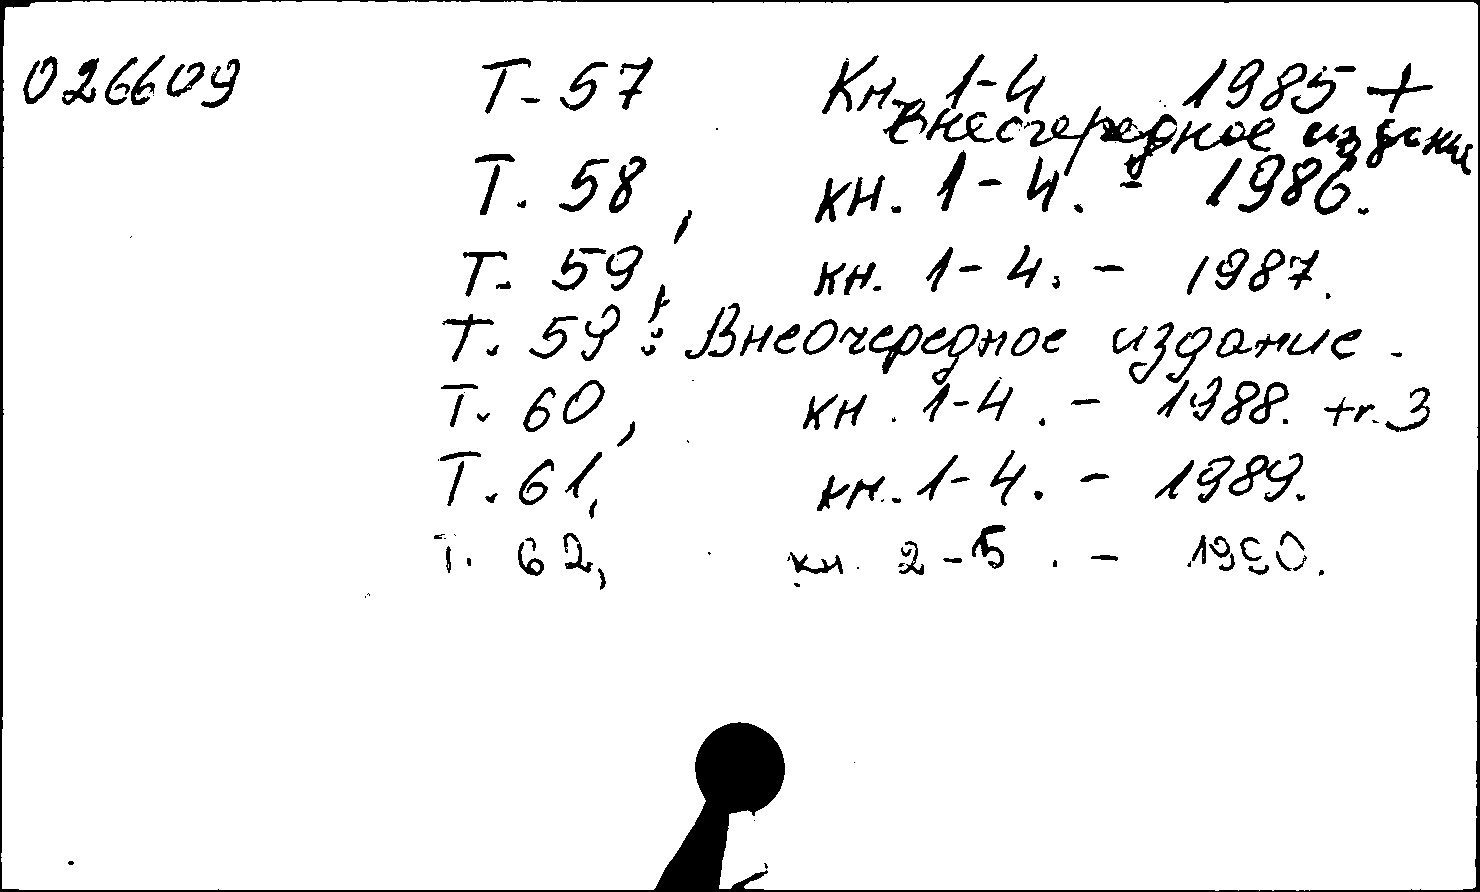 026609 Т. 57 Кн. 1-4 1985 +
внеочередное издание
Т. 58, кн. 1-4. - 1986.
Т. 59, кн. 1-4. - 1987.
Т. 59: Внеочередное издание.
Т. 60, кн. 1-4. - 1988. +г. 3
Т. 61, кн. 1-4. - 1989.
Т. 62, кн. 2-5. - 1990.